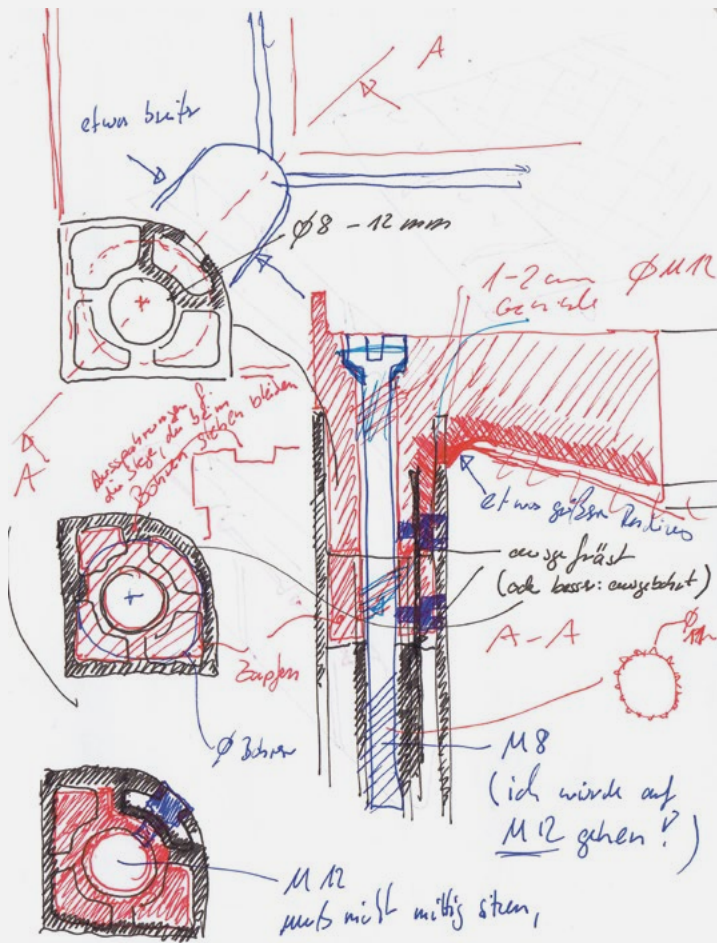 A
etwas breiter
Ø 8 – 12 mm
1–2 cm Ø M12
Gewinde
Aussparungen f.
die Stege, die beim
Bohren stehen bleiben
A
etwas größerer Radius
ausgefräst
(oder besser: ausgebohrt)
A – A
Ø
Zapfen
Ø Bohrer
M8
(ich würde auf
M12 gehen!)
M12
muß nicht mittig sitzen,